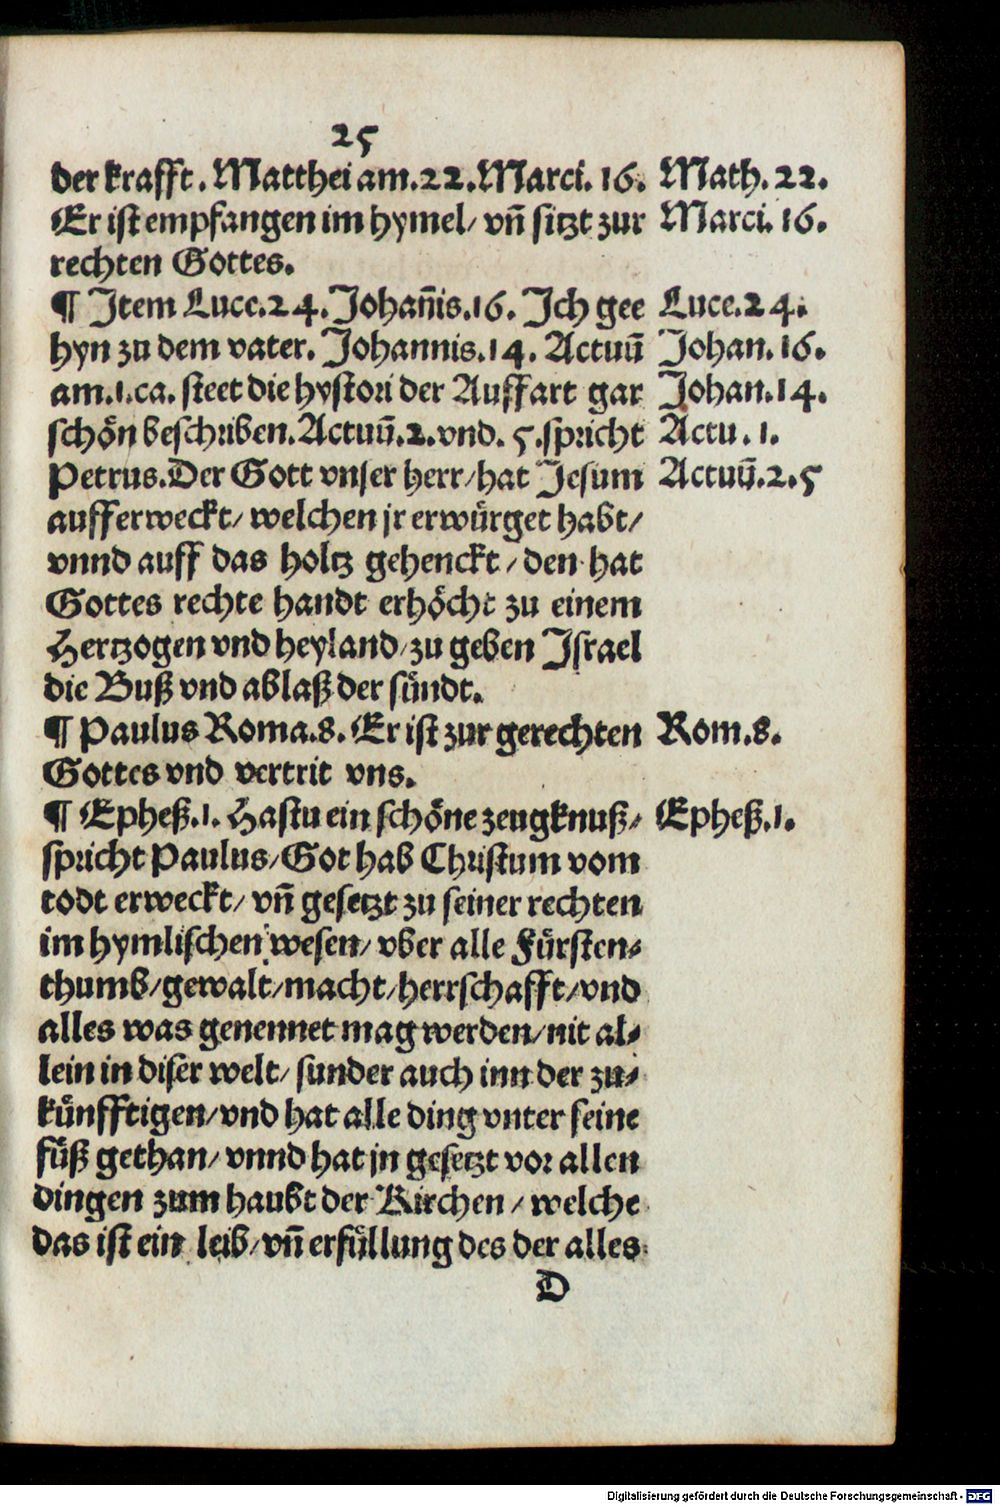 25
der krafft. Matthei am.22.Marci. 16. Math. 22.
Er ist empfangen im hymel/ vñ sitzt zur Marci. 16.
rechten Gottes.
¶ Item Luce.24. Johañis.16. Ich gee Luce.24.
hyn zu dem vater. Johannis.14. Actuū Johan. 16.
am.1.ca. steet die hystori der Auffart gar Johan.14.
schön beschriben. Actuū.2.vnd. 5.spricht Actu. 1.
Petrus.Der Gott vnser herr/hat Jesum Actuū.2.5
aufferweckt/ welchen jr erwürget habt/
vnnd auff das holtz gehenckt/ den hat
Gottes rechte handt erhöcht zu einem
Hertzogen vnd heyland/zu geben Israel
die Buß vnd ablaß der sündt.
¶ Paulus Roma.8. Er ist zur gerechten Rom.8.
Gottes vnd vertrit vns.
¶ Epheß.1. Hastu ein schöne zeugknuß/ Epheß.1.
spricht Paulus/Got hab Christum vom
todt erweckt/ vñ gesetzt zu seiner rechten
im hymlischen wesen/ vber alle Fürsten⸗
thumb/gewalt/macht/herrschafft/vnd
alles was genennet mag werden/nit al⸗
lein in diser welt/ sunder auch inn der zu⸗
künfftigen/vnd hat alle ding vnter seine
füß gethan/ vnnd hat jn gesetzt vor allen
dingen zum haubt der Kirchen/ welche
das ist ein leib/vñ erfüllung des der alles
D
Digitalisierung gefördert durch die Deutsche Forschungsgemeinschaft - DFG